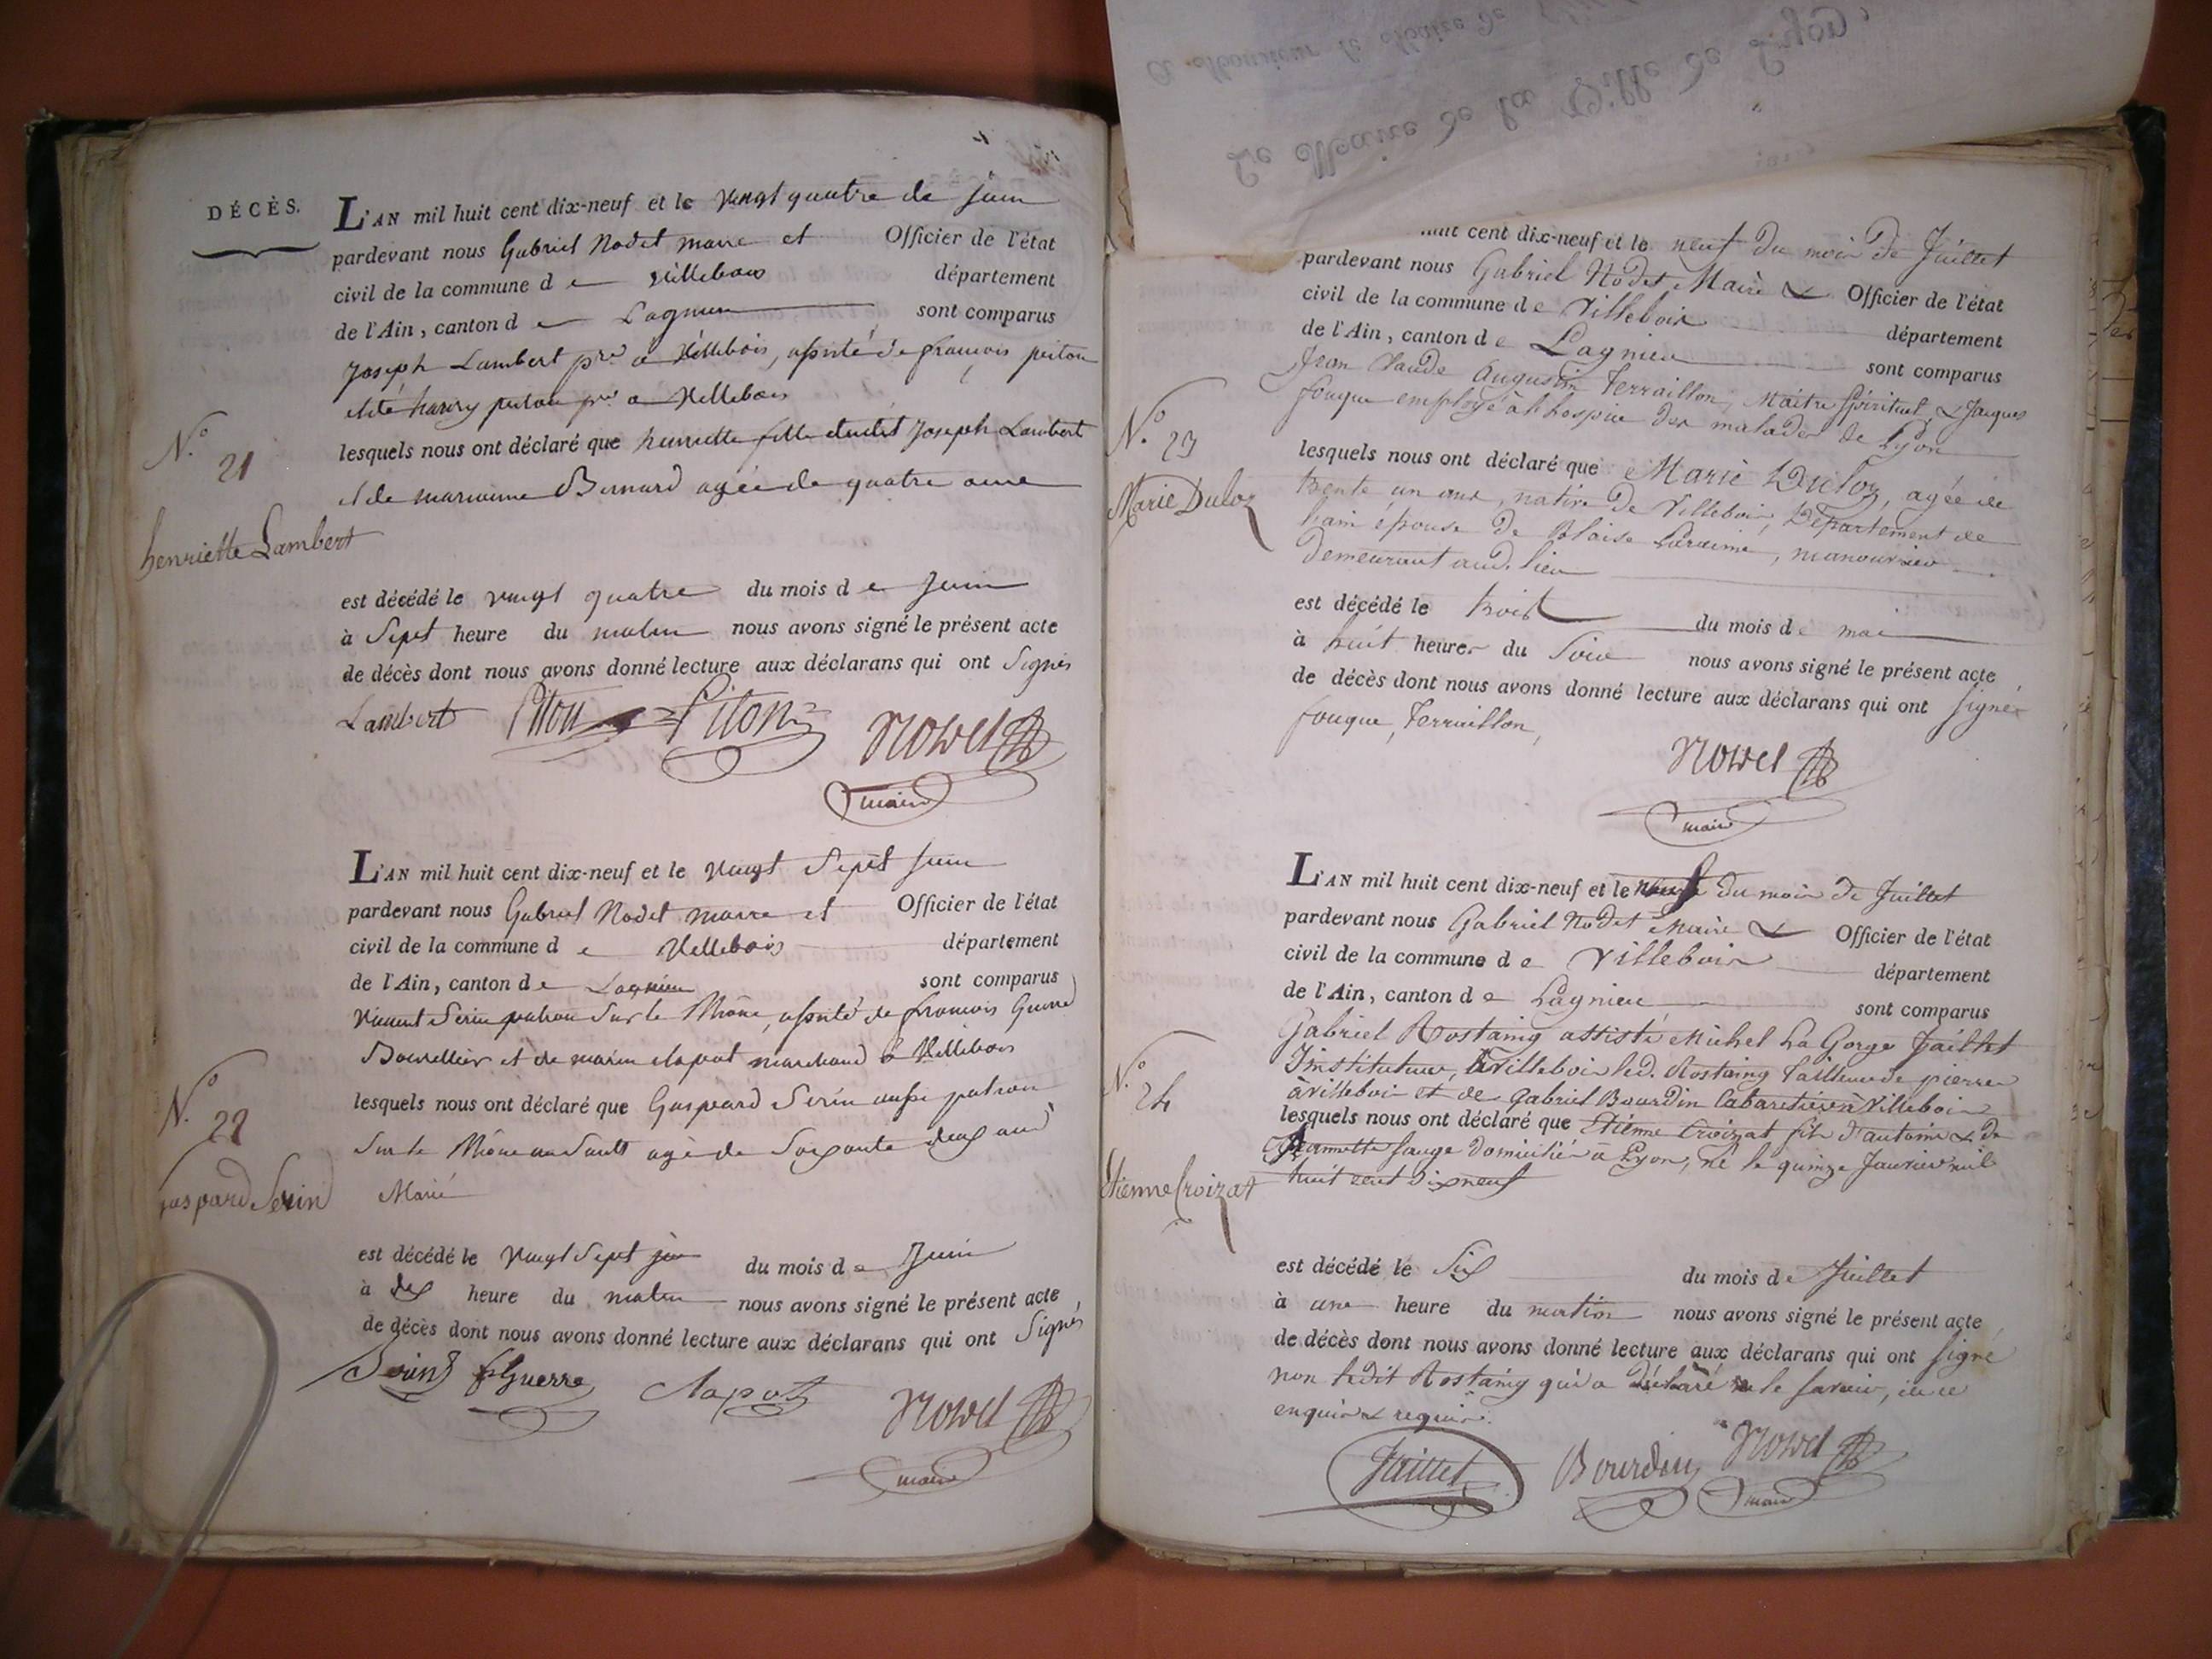 DÉCÈS.
L'AN mil huit cent dix-neuf et le vingt quatre de juin
pardevant nous Gabriel Nodet maire et Officier de l'état
civil de la commune d e villebois département
de l'Ain, canton d e Lagnieu sont comparus
Joseph Lambert pre à Villebois, assisté de françois piton
et de piton pre a Villebois
N.o 21
lesquels nous ont déclaré que henriette fille dudit Joseph Lambert
et de marianne Bernard agée de quatre ans
henriette Lambert
est décédé le vingt quatre du mois d e Juin
à Sept heure du matin nous avons signé le présent acte
de décès dont nous avons donné lecture aux déclarans qui ont Signés
Lambert Piton Piton Nodet
maire
L'AN mil huit cent dix-neuf et le vingt Sept juin
pardevant nous Gabriel Nodet maire et Officier de l'état
civil de la commune d e Villebois département
de l'Ain, canton d e Lagnieu sont comparus
Vincent Serin patron Sur le Rhône, assisté de francois Guerre
Bourellier et de marin clapot marchand à Villebois
N.o 22
lesquels nous ont déclaré que Gaspard Serin aussi patron
Sur le Rhône au Sault agé de Soixante deux ans
gaspard Serin
Marié
est décédé le vingt Sept juin du mois d e Juin
à dix heure du matin nous avons signé le présent acte,
de décès dont nous avons donné lecture aux déclarans qui ont Signés
Serin f Guerre Clapot Nodet
maire
A Monsieur le Maire de
Le Maire de la Ville de Lyon,
huit cent dix-neuf et le neuf du mois de Juillet
pardevant nous Gabriel Nodet Maire & Officier de l'état
civil de la commune d e Villebois département
de l'Ain, canton d e Lagnieu sont comparus
Jean Claude Augustin Terraillon, Maitre Spirituel & Jacques
fouque employé à l'hospice des malades de Lyon
N.o 23
lesquels nous ont déclaré que Marie Duloz, agée de
trente un ans, native de Villebois, Département de
Marie Duloz
l'ain épouse de Blaise, manouvrier
demeurant aud. lieu
est décédé le trois du mois d e mai
à huit heures du Soir nous avons signé le présent acte,
de décès dont nous avons donné lecture aux déclarans qui ont signés
fouque, Terraillon, Nodet
maire
L'AN mil huit cent dix-neuf et le neuf du mois de Juillet
pardevant nous Gabriel Nodet Maire & Officier de l'état
civil de la commune d e Villebois département
de l'Ain, canton d e Lagnieu sont comparus
Gabriel Rostaing assisté Michel La Gorge Jaillet
Instituteur, à Villebois led. Rostaing tailleur de pierres
à Villebois et de Gabriel Bourdin Cabaretier à Villebois
N.o 24
lesquels nous ont déclaré que Etienne Croizat fils d'antoine & de
Jeannette sauge domiciliés à Lyon, né le quinze Janvier mil
Etienne Croizat
huit cent dix neuf
est décédé le Six du mois d e Juillet
à une heure du matin nous avons signé le présent acte,
de décès dont nous avons donné lecture aux déclarans qui ont signé
non ledit Rostaing qui a déclaré ne le savoir, de ce
enquis & requis.
Jaillet Bourdin Nodet
maire